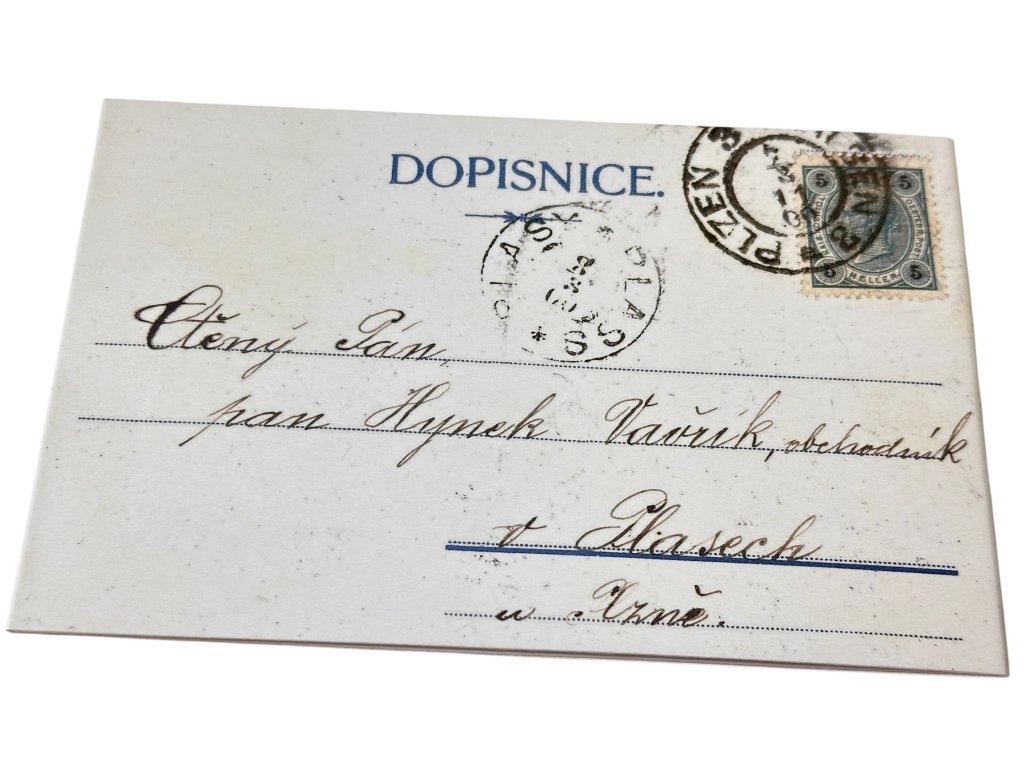 DOPISNICE.
PLZEN 3
PLASY PLASS
5 5
5 5
HELLER
Ctěný Pán,
pan Hynek Vavřík, obchodník
v Plasech
u Plzně.